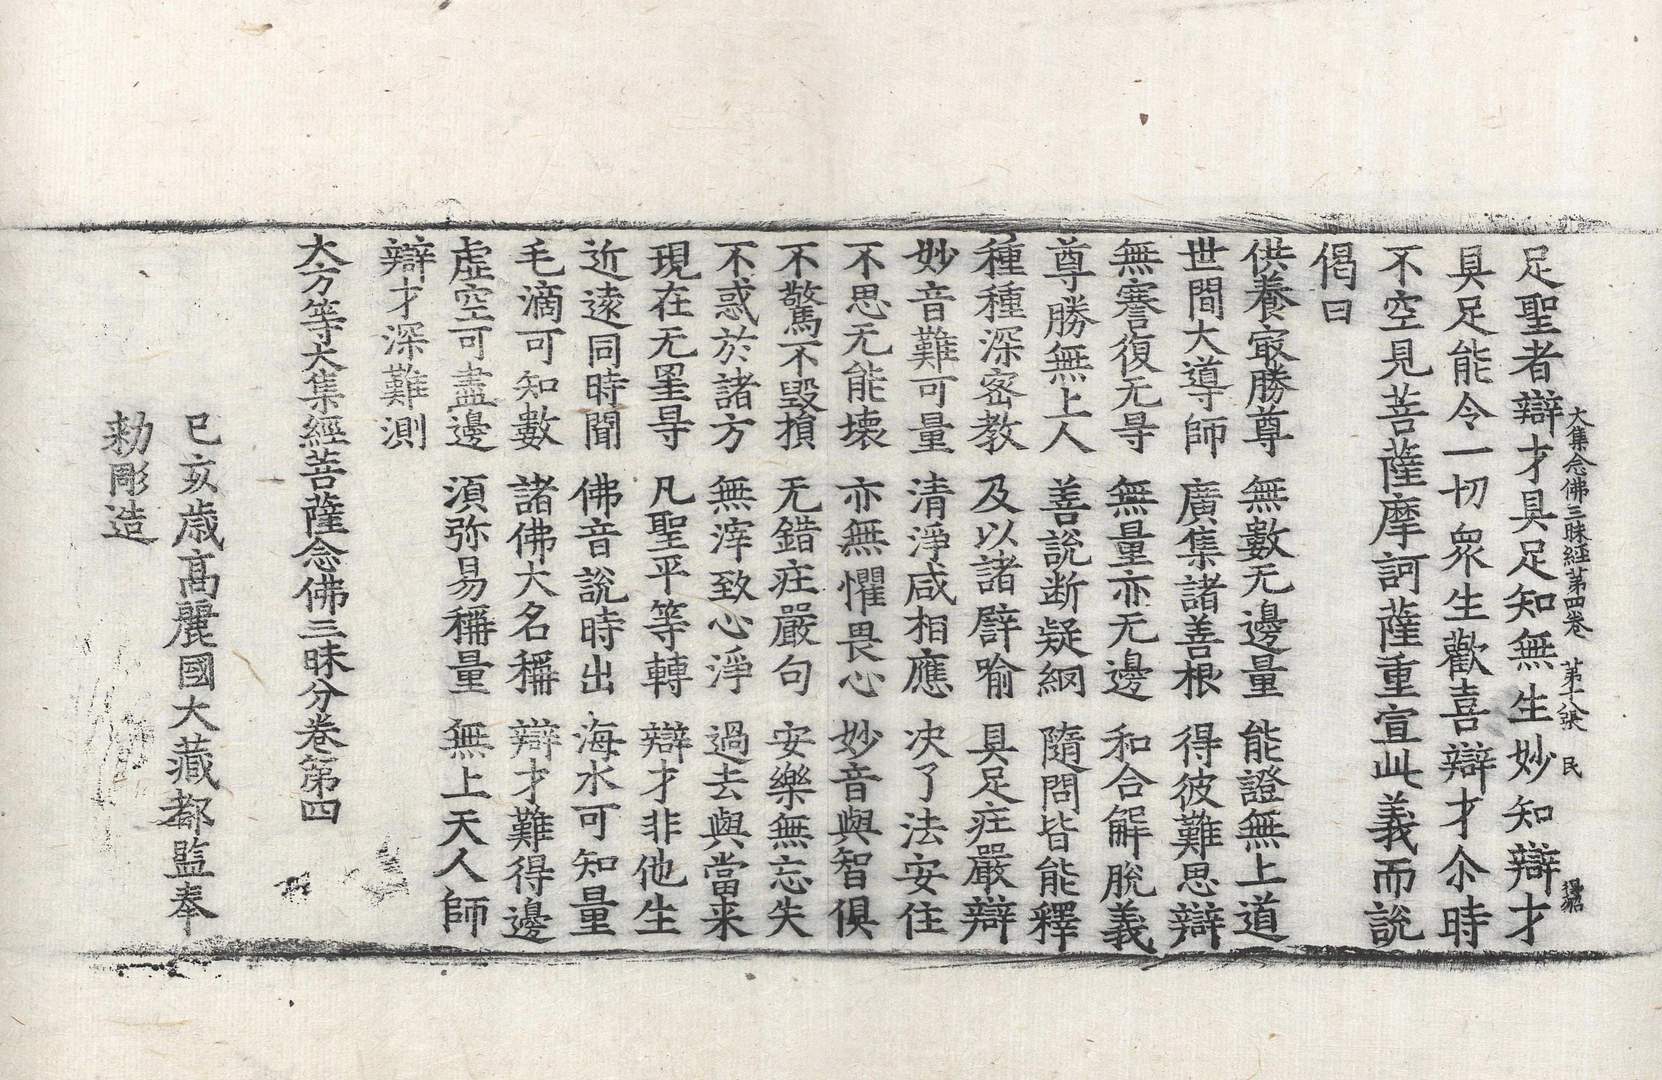 大集念佛三昧経第四卷　第十八張　民
足聖者辯才具足知無生妙知辯才
具足能令一切衆生歡喜辯才尒時
不空見菩薩摩訶薩重宣此義而說
偈曰
供養㝡勝尊　無數无邊量　能證無上道
世間大導師　廣集諸善根　得彼難思辯
無謇復无㝵　無量亦无邊　和合解脫義
尊勝無上人　善說断疑網　隨問皆能釋
種種深密教　及以諸譬喻　具足庄嚴辯
妙音難可量　清淨咸相應　决了法安住
不思无能壞　亦無懼畏心　妙音與智俱
不驚不毀損　无錯庄嚴句　安樂無忘失
不惑於諸方　無滓致心淨　過去與當来
現在无罣㝵　凡聖平等轉　辯才非他生
近遠同時聞　佛音說時出　海水可知量
毛滴可知數　諸佛大名稱　辯才難得邊
虛空可盡邊　湏弥易稱量　無上天人師
辯才深難測
大方等大集經菩薩念佛三昧分卷第四
己亥歲高麗國大藏都監奉
勑彫造